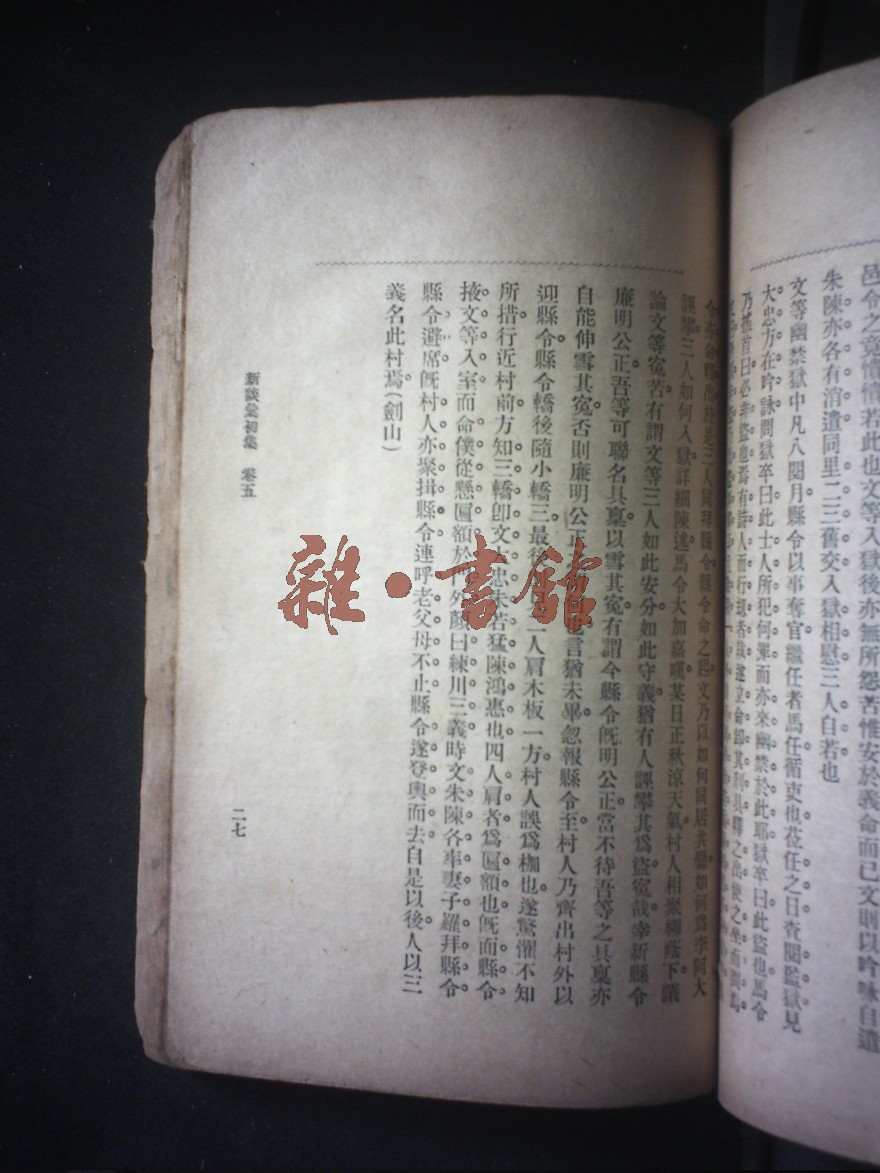 邑令之竟憒憒若此也文等入獄後亦無所怨苦惟安於義命而已文則以吟咏自遣
朱陳亦各有消遣同里二三舊交入獄相慰三人自若也
文等幽禁獄中凡八閱月縣令以事奪官繼任者馬任循吏也莅任之日查閱監獄見
大忠方在吟詠問獄卒曰此士人所犯何罪而亦來幽禁於此耶獄卒曰此盜也馬令
乃搖首曰必非盜也焉有詩人而行
令亦命釋出於是三人同拜縣令縣令命之起文乃以如何同居共
如何爲李阿大
誣攀三人如何入獄詳細陳述馬令大加嘉嘆某日正秋涼天氣村人相聚柳蔭下議
論文等冤苦有謂文等三人如此安分如此守義猶有人誣攀其爲盜冤哉幸新縣令
廉明公正吾等可聯名具稟以雪其冤有謂今縣令既明公正當不待吾等之具稟亦
自能伸雪其冤否則廉明公正
言猶未畢忽報縣令至村人乃齊出村外以
迎縣令縣令轎後隨小轎三最後
二人肩木板一方村人誤爲枷也遂驚懼不知
所措行近村前方知三轎卽文大忠朱若猛陳鴻惠也四人肩者爲匾額也既而縣令
掖文等入室而命僕從懸匾額於門外顏曰練川三義時文朱陳各率妻子羅拜縣令
縣令避席既村人亦聚揖縣令連呼老父母不止縣令遂登輿而去自是以後人以三
義名此村焉(劍山)
新談彙初集 卷五
二七
雜·書館